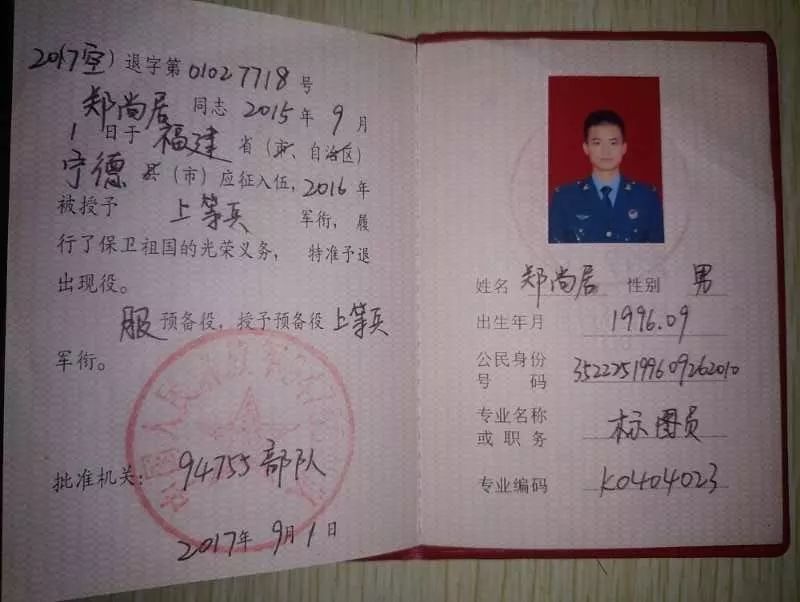 2017(空)退字第01027718号
郑尚居 同志 2015年 9月
1日于 福建 省(市、自治区)
宁德县(市)应征入伍,2016年
被授予 上等兵 军衔,履
行了保卫祖国的光荣义务, 特准予退
出现役。
服预备役,授予预备役上等兵
军衔。
批准机关: 94755部队
2017年 9月 1日
姓名 郑尚居 性别 男
出生年月 1996.09
公民身份
号 码 352225199609262010
专业名称
或 职 务 标图员
专业编码 K0404023